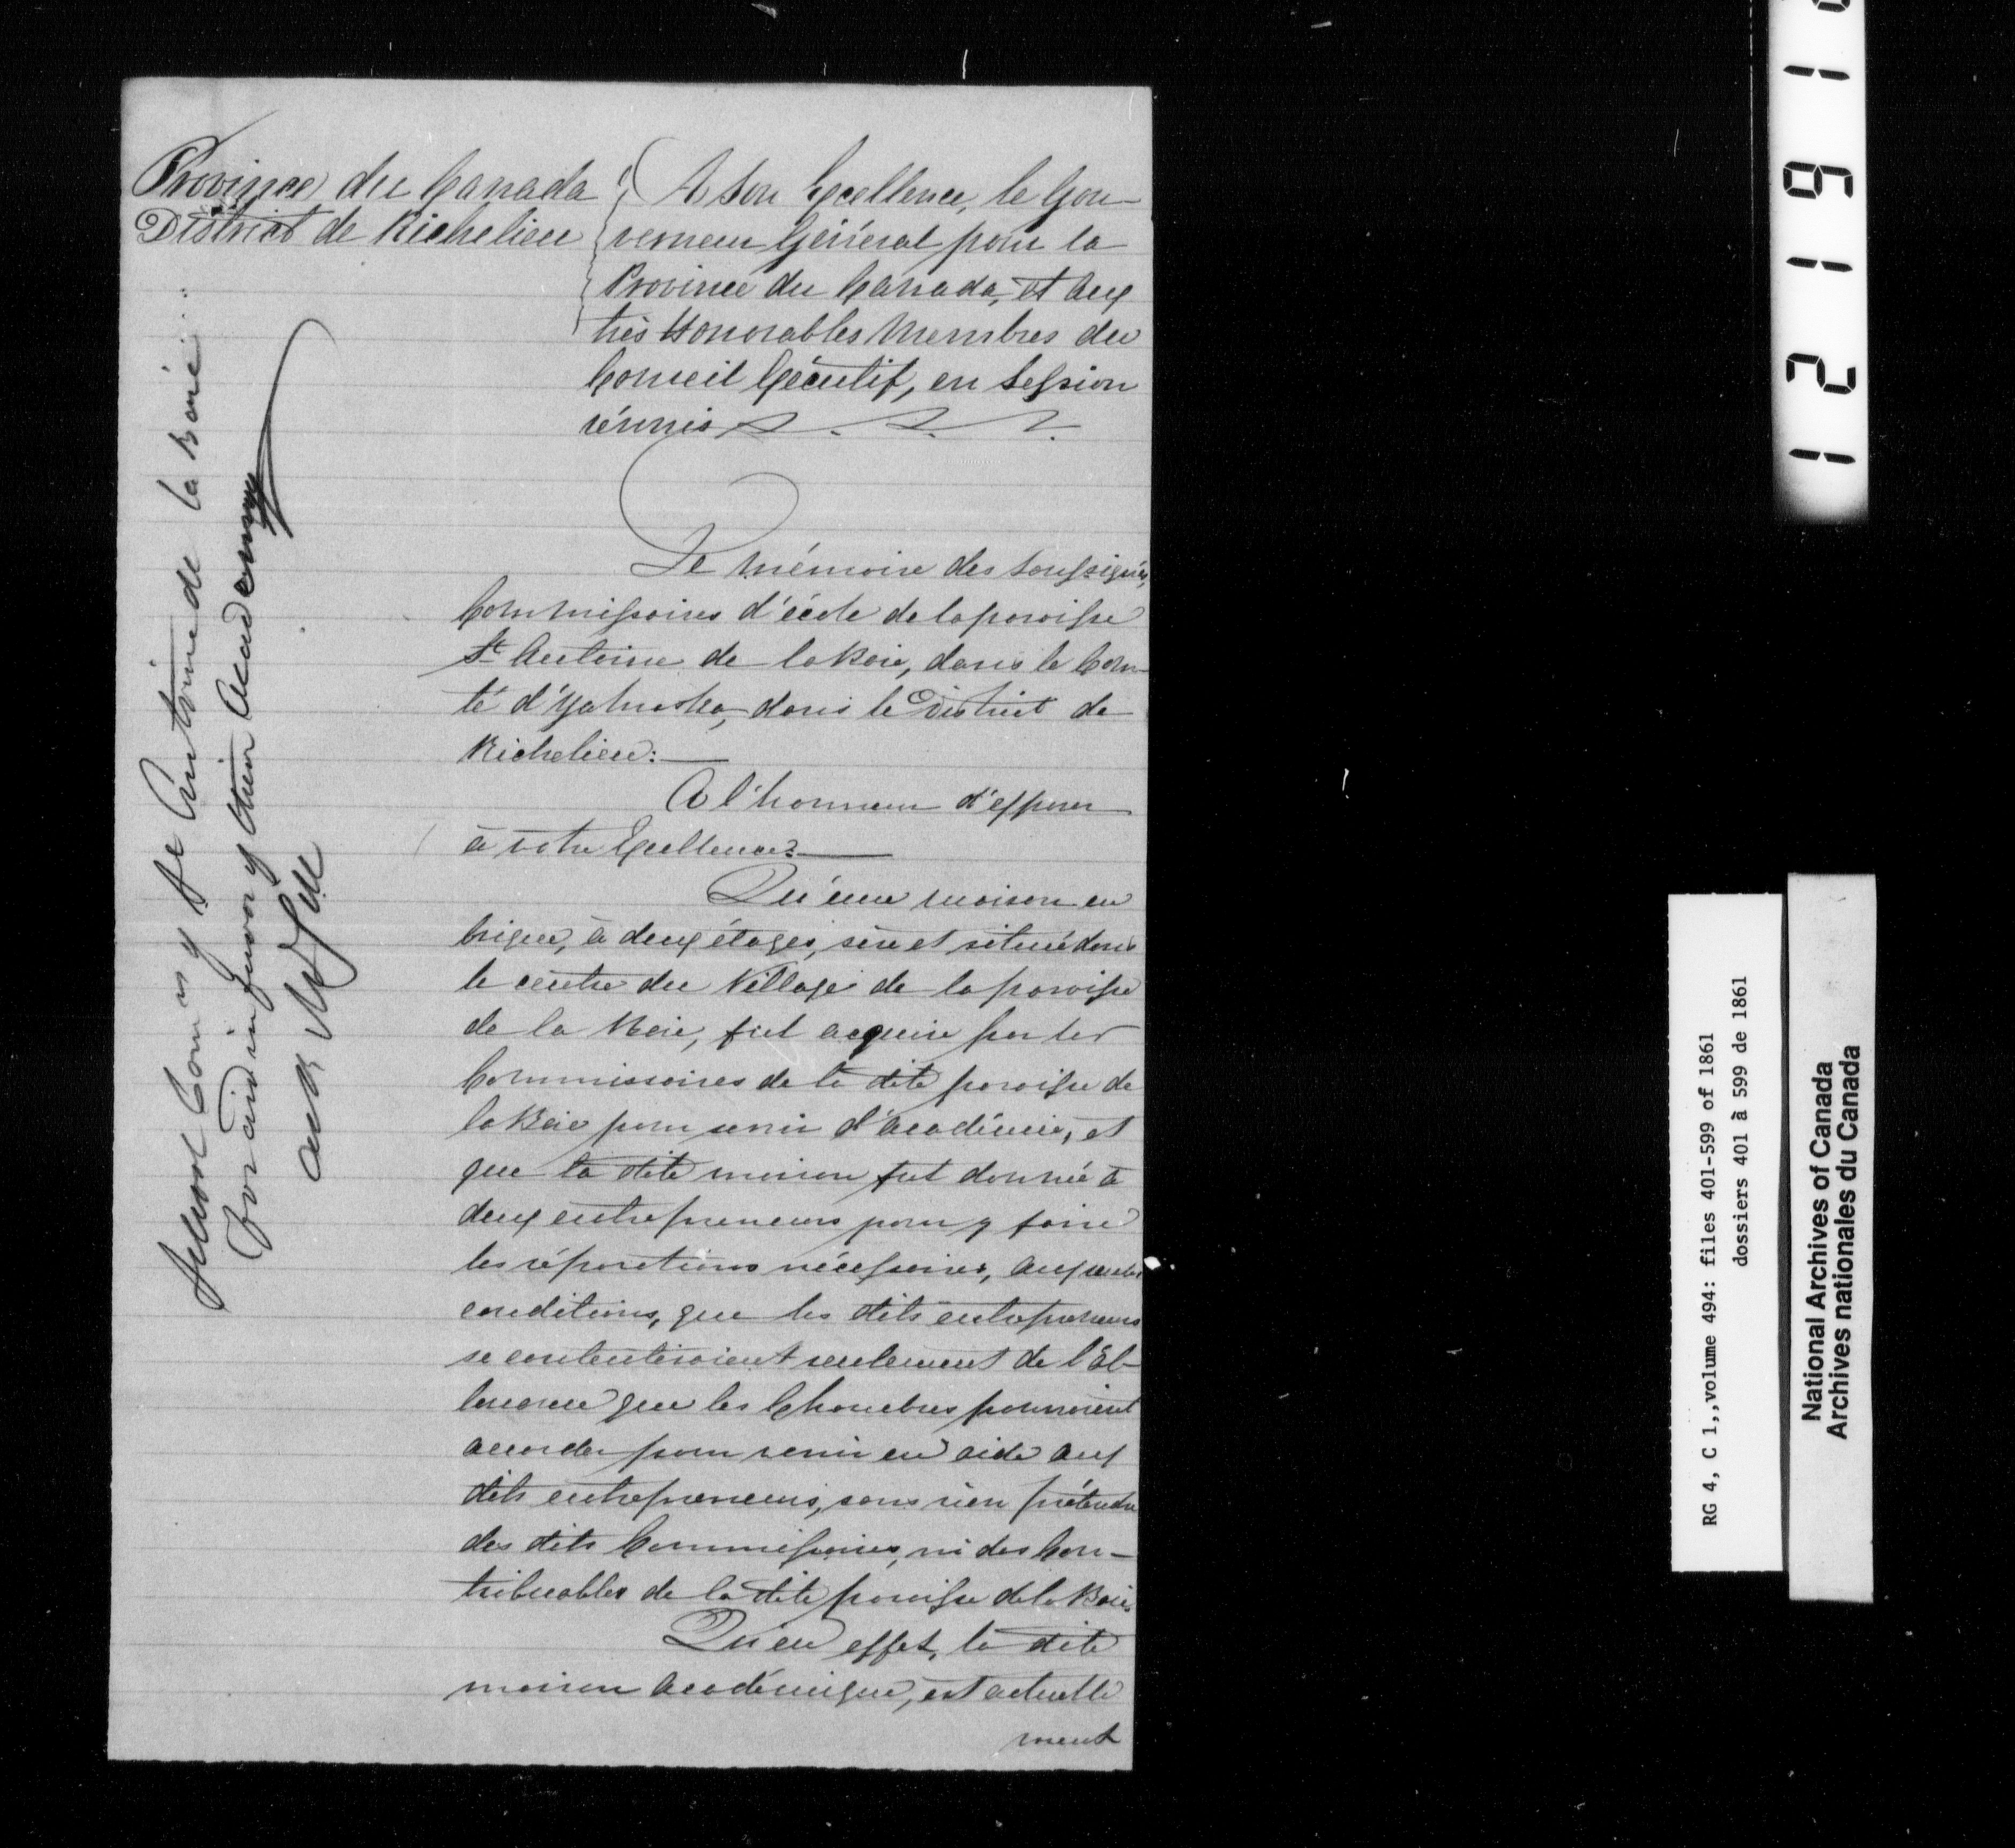 Province du Canada
District de Richelieu
A Son Excellence, le Gou-
verneur Général pour la
Province du Canada, et aux
très Honorables Membres du
Conseil Exécutif, en Session
réunis
Le mémoire des Soussignés,
Commissaires d'école de la paroisse
St Antoine de la Baie, dans le Com-
té d'Yamaska, dans le District de
Richelieu:—
A l'honneur d'exposer
à votre Excellence:—
Qu'une maison en
brique, à deux étages, sise et située dans
le centre du Village de la paroisse
de la Baie, fut acquise par les
Commissaires de la dite paroisse de
la Baie pour servir d'académie, et
que la dite maison fut donnée à
deux entrepreneurs pour y faire
les réparations nécessaires, aux
conditions, que les dits entrepreneurs
se contenteraient seulement de l'al-
louance que les Chambres pourraient
accorder pour venir en aide aux
dits entrepreneurs, sans rien prétendre
des dits Commissaires, ni des Con-
tribuables de la dite paroisse de la Baie.
Qu'en effet, la dite
maison académique, est actuelle
ment
School Comrs of St Antoine de la Baie
for aid in favor of their Academy
RG 4, C 1,,volume 494: files 401-599 of 1861
dossiers 401 à 599 de 1861
National Archives of Canada
Archives nationales du Canada